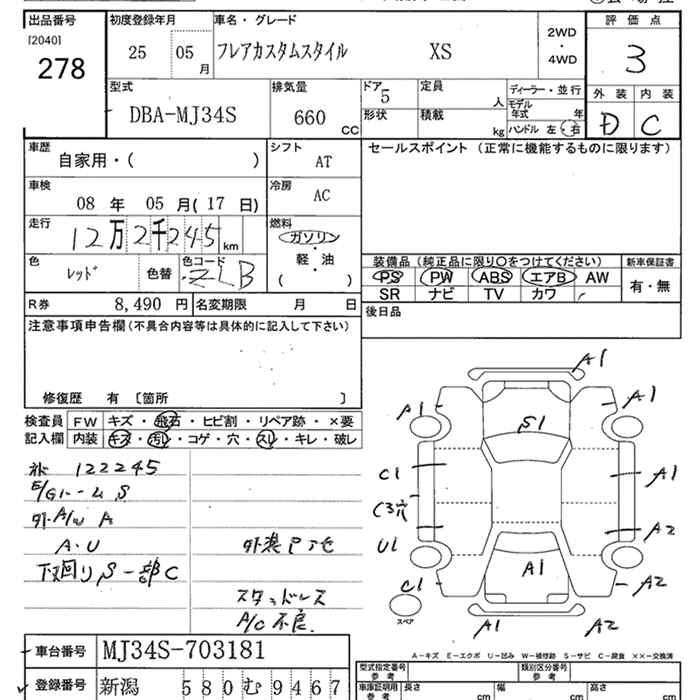 出品番号
[2040]
278
初度登録年月
25 05
月
車名・グレード
フレアカスタムスタイル XS
2WD
・
4WD
評価点
3
外装 内装
D C
型式
DBA-MJ34S
排気量
660
CC
ドア
5
形状
定員
人
積載
kg
ディーラー・並行
モデル
年式 年
ハンドル 左・右
車歴
自家用・( )
シフト
AT
車検
08 年 05 月( 17 日)
冷房
AC
走行
12万2千245
km
燃料
ガソリン
・
軽・油
( )
色
レッド
色替
色コード
ZLB
R券 8,490 円
名変期限 月 日
セールスポイント (正常に機能するものに限ります)
装備品(純正品に限り○をつけてください)
PS PW ABS エアB AW
SR ナビ TV カワ
新車保証書
有・無
後日品
注意事項申告欄(不具合内容等は具体的に記入して下さい)
修復歴 有 〔箇所 〕
検査員
記入欄
FW キズ・飛石・ヒビ割・リペア跡・×要
内装 キズ・汚レ・コゲ・穴・スレ・キレ・破レ
122245
E/Gルーム S
外A/W A
A・U
下回りS一部C
外装
スタッドレス
A/C不良.
A1
A1
A1
S1
C1
A1
C3穴
U1
A2
A1
C1
A2
A1
A2
スペア
A-キズ E-エクボ U-凹み W-補修跡 S-サビ C-腐食 ××-交換済
車台番号
MJ34S-703181
登録番号
新潟 580む9467
型式指定番号
参考
類別区分番号
参考
車庫証明用
参考
長さ
cm
幅
cm
高さ
cm